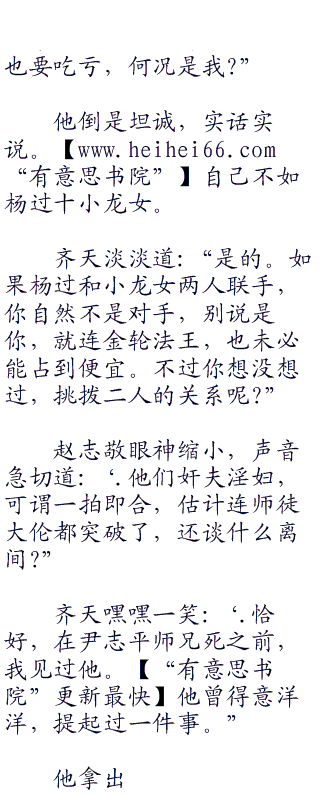 也要吃亏，何况是我?”
他倒是坦诚，实话实
说。【www.heihei66.com
“有意思书院”】自己不如
杨过十小龙女。
齐天淡淡道：“是的。如
果杨过和小龙女两人联手，
你自然不是对手，别说是
你，就连金轮法王，也未必
能占到便宜。不过你想没想
过，挑拨二人的关系呢?”
赵志敬眼神缩小，声音
急切道：‘.他们奸夫淫妇，
可谓一拍即合，估计连师徒
大伦都突破了，还谈什么离
间?”
齐天嘿嘿一笑：‘.恰
好，在尹志平师兄死之前，
我见过他。【“有意思书
院”更新最快】他曾得意洋
洋，提起过一件事。”
他拿出